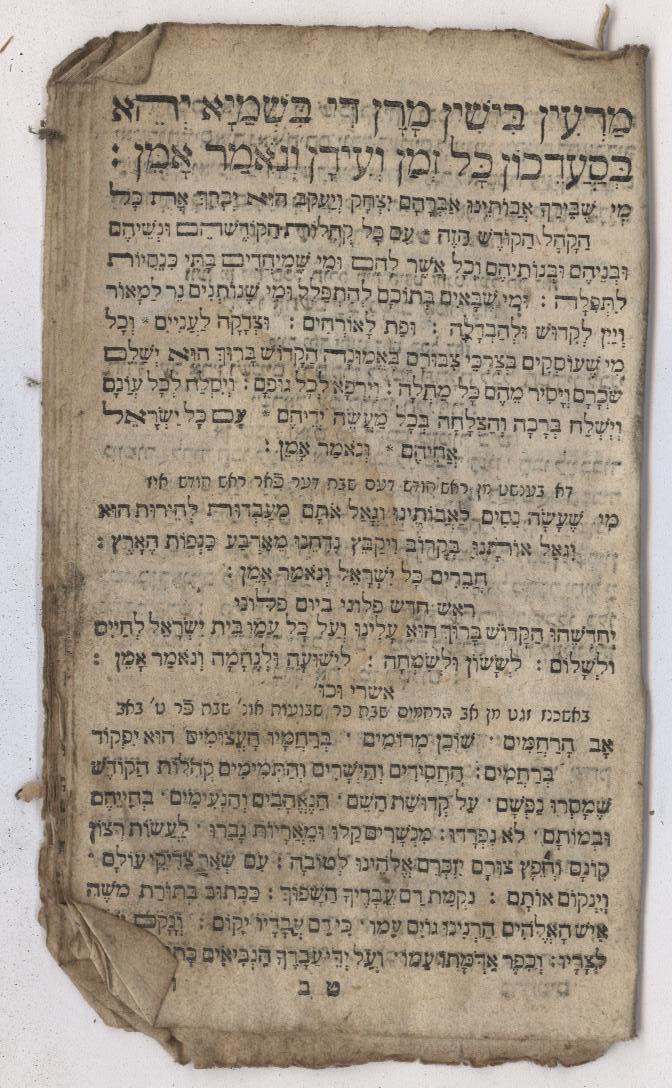 מַרְעִין בִּישִׁין מָרָן דִּי בִשְׁמַיָּא יְהֵא
בְּסַעְדְּכוֹן כָּל זְמַן וְעִידָן וְנֹאמַר אָמֵן :
מִי שֶׁבֵּירַךְ אֲבוֹתֵינוּ אַבְרָהָם יִצְחָק וְיַעֲקֹב הוּא יְבָרֵךְ אֶת כָּל
הַקָּהָל הַקּוֹדֶשׁ הַזֶּה · עִם כָּל קְהִלּוֹת הַקּוֹדֶשׁ הֵם וּנְשֵׁיהֶם
וּבְנֵיהֶם וּבְנוֹתֵיהֶם וְכָל אֲשֶׁר לָהֶם וּמִי שֶׁמְּיַחֲדִים בָּתֵּי כְנֵסִיּוֹת
לִתְפִלָּה : וּמִי שֶׁבָּאִים בְּתוֹכָם לְהִתְפַּלֵּל וּמִי שֶׁנּוֹתְנִים נֵר לַמָּאוֹר
וְיַיִן לְקִדּוּשׁ וּלְהַבְדָּלָה : וּפַת לָאוֹרְחִים : וּצְדָקָה לַעֲנִיִּים * וְכָל
מִי שֶׁעוֹסְקִים בְּצָרְכֵי צִבּוּרִם בֶּאֱמוּנָה הַקָּדוֹשׁ בָּרוּךְ הוּא יְשַׁלֵּם
שְׂכָרָם וְיָסִיר מֵהֶם כָּל מַחֲלָה : וְיִרְפָּא לְכָל גּוּפָם : וְיִסְלַח לְכָל עֲוֹנָם
וְיִשְׁלַח בְּרָכָה וְהַצְלָחָה בְּכָל מַעֲשֵׂה יְדֵיהֶם * עִם כָּל יִשְׂרָאֵל
אֲחֵיהֶם * וְנֹאמַר אָמֵן :
דא בענשט מן ראש חודש דעס שבת דער פֿאר ראש חודש איז
מִי שֶׁעָשָׂה נִסִּים לַאֲבוֹתֵינוּ וְגָאַל אֹתָם מֵעַבְדוּת לְחֵירוּת הוּא
יִגְאַל אוֹתָנוּ בְּקָרוֹב וִיקַבֵּץ נִדָּחֵנוּ מֵאַרְבַּע כַּנְפוֹת הָאָרֶץ :
חֲבֵרִים כָּל יִשְׂרָאֵל וְנֹאמַר אָמֵן :
ראש חדש פלוני ביום פלוני
יְחַדְּשֵׁהוּ הַקָּדוֹשׁ בָּרוּךְ הוּא עָלֵינוּ וְעַל כָּל עַמּוֹ בֵּית יִשְׂרָאֵל לְחַיִּים
וּלְשָׁלוֹם : לְשָׂשׂוֹן וּלְשִׂמְחָה : לִישׁוּעָה וּלְנֶחָמָה וְנֹאמַר אָמֵן :
אשרי וכו'
באשכנז זגט מן אב הרחמים שבת פֿר שבועות אונ' שבת פֿר ט' באב
אָב הָרַחֲמִים · שׁוֹכֵן מְרוֹמִים · בְּרַחֲמָיו הָעֲצוּמִים הוּא יִפְקוֹד
בְּרַחֲמִים : הַחֲסִידִים וְהַיְשָׁרִים וְהַתְּמִימִים קְהִלּוֹת הַקּוֹדֶשׁ
שֶׁמָּסְרוּ נַפְשָׁם · עַל קְדוּשַׁת הַשֵּׁם · הַנֶּאֱהָבִים וְהַנְּעִימִים · בְּחַיֵּיהֶם
וּבְמוֹתָם · לֹא נִפְרָדוּ : מִנְּשָׁרִים קַלּוּ וּמֵאֲרָיוֹת גָּבֵרוּ · לַעֲשׂוֹת רְצוֹן
קוֹנָם וְחֵפֶץ צוּרָם יִזְכְּרֵם אֱלֹהֵינוּ לְטוֹבָה : עִם שְׁאָר צַדִּיקֵי עוֹלָם ·
וְיִנְקוֹם אוֹתָם : נִקְמַת דַּם עֲבָדֶיךָ הַשָּׁפוּךְ : כַּכָּתוּב בְּתוֹרַת מֹשֶׁה
אִישׁ הָאֱלֹהִים הַרְנִינוּ גוֹיִם עַמּוֹ · כִּי דַם עֲבָדָיו יִקּוֹם : וְנָקָם
לְצָרָיו : וְכִפֶּר אַדְמָתוֹ עַמּוֹ · וְעַל יְדֵי עֲבָדֶיךָ הַנְּבִיאִים
ט ב